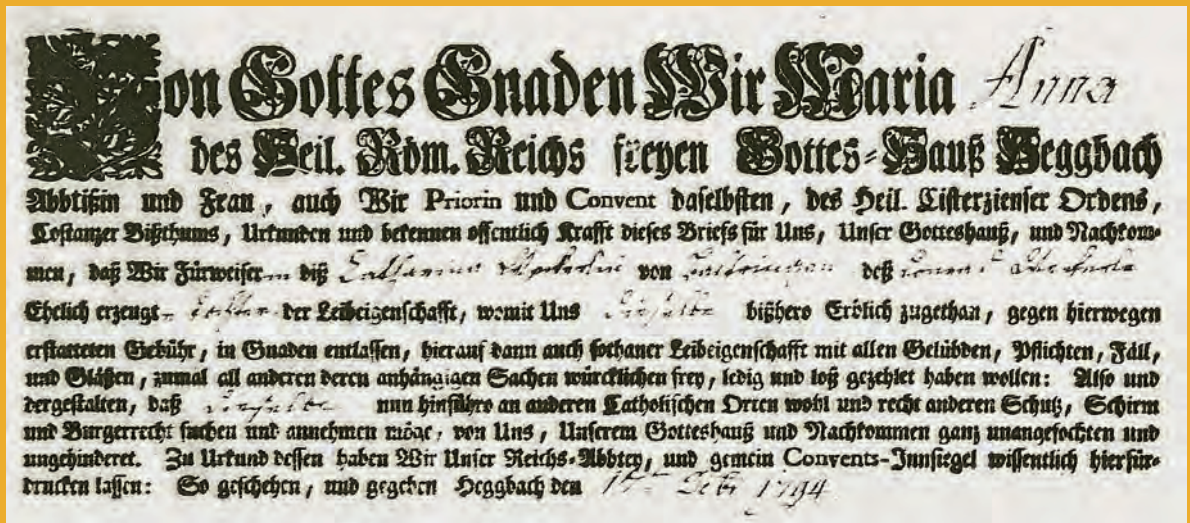 Von Gottes Gnaden Wir Maria Anna
des Heil. Röm. Reichs freyen Gottes=Hauß Heggbach
Abbtißin und Frau, auch Wir Priorin und Convent daselbsten, des Heil. Cisterzienser Ordens,
Costanzer Bißthums, Urkunden und bekennen offentlich Krafft dieses Briefs für Uns, Unser Gotteshauß, und Nachkom=
men, daß Wir Fürweiser diß Catharina von deß
Ehelich erzeugt Tochter der Leibeigenschafft, womit Uns Dieselbe bißhero Erblich zugethan, gegen hierwegen
erstatteten Gebühr, in Gnaden entlassen, hierauf dann auch sothaner Leibeigenschafft mit allen Gelübden, Pflichten, Fäll,
und Gläßen, zumal all anderen deren anhängigen Sachen würcklichen frey, ledig und loß gezehlet haben wollen: Also und
dergestalten, daß Dieselbe nun hinführo an anderen Catholischen Orten wohl und recht anderen Schutz, Schirm
und Burgerrecht suchen und annehmen möge, von Uns, Unserem Gotteshauß und Nachkommen ganz unangefochten und
ungehinderet. Zu Urkund dessen haben Wir Unser Reichs=Abbtey, und gemein Convents-Innsiegel wissentlich hierfür=
drucken lassen: So geschehen, und gegeben Heggbach den 1794